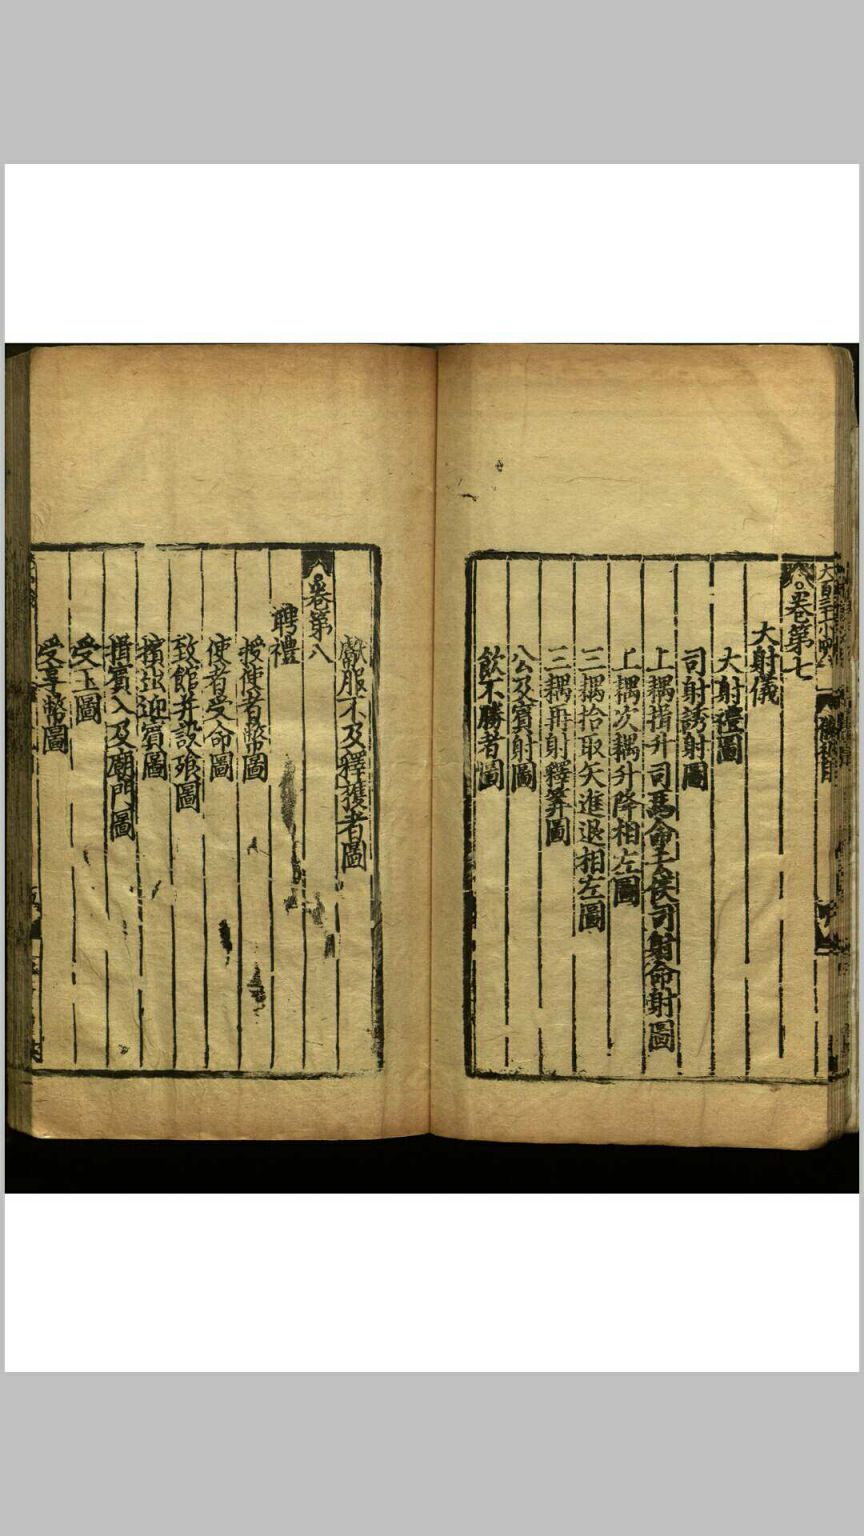 卷第七
大射儀
大射禮圖
司射誘射圖
上耦揖升司馬命去侯司射命射圖
上耦次耦升降相左圖
三耦拾取矢進退相左圖
三耦再射釋筭圖
公及賓射圖
飲不勝者圖
獻服不及釋獲者圖
卷第八
聘禮
授使者幣圖
使者受命圖
致館并設飱圖
擯出迎賓圖
揖賓入及廟門圖
受玉圖
受享幣圖